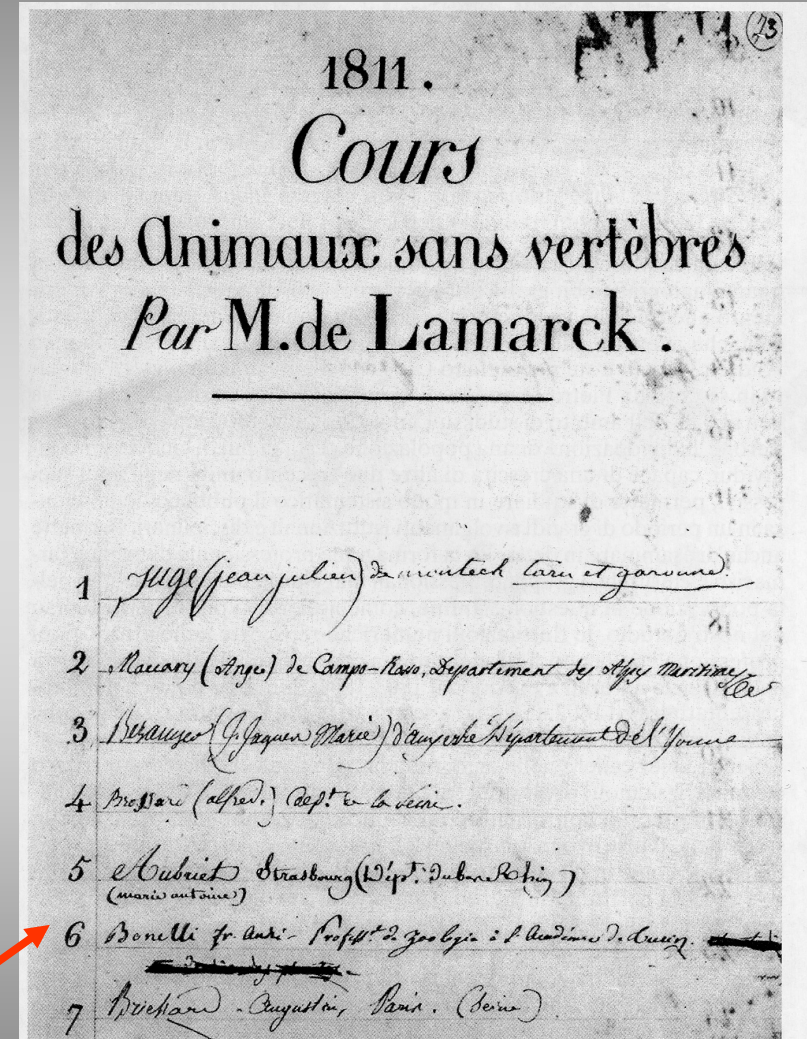 23
1811.
Cours
des Animaux sans vertèbres
Par M. de Lamarck.
1 Juge (jean julien) de montech tarn et garonne.
2 (Ange) de Campo-Rosso, Departement des Alpes Maritimes
3 (J. Jaques Marie) d'auxerre Département de l'Yonne
4 Brossard (alfred.) Dept. de la Seine.
5 Aubriet Strasbourg (Dépt. du bas Rhin)
(marie antoine)
6 Bonelli fr. andré - Profess.r de Zoologie à l'Académie de Turin.
7 Brichard - Augustin, Paris. (Seine)